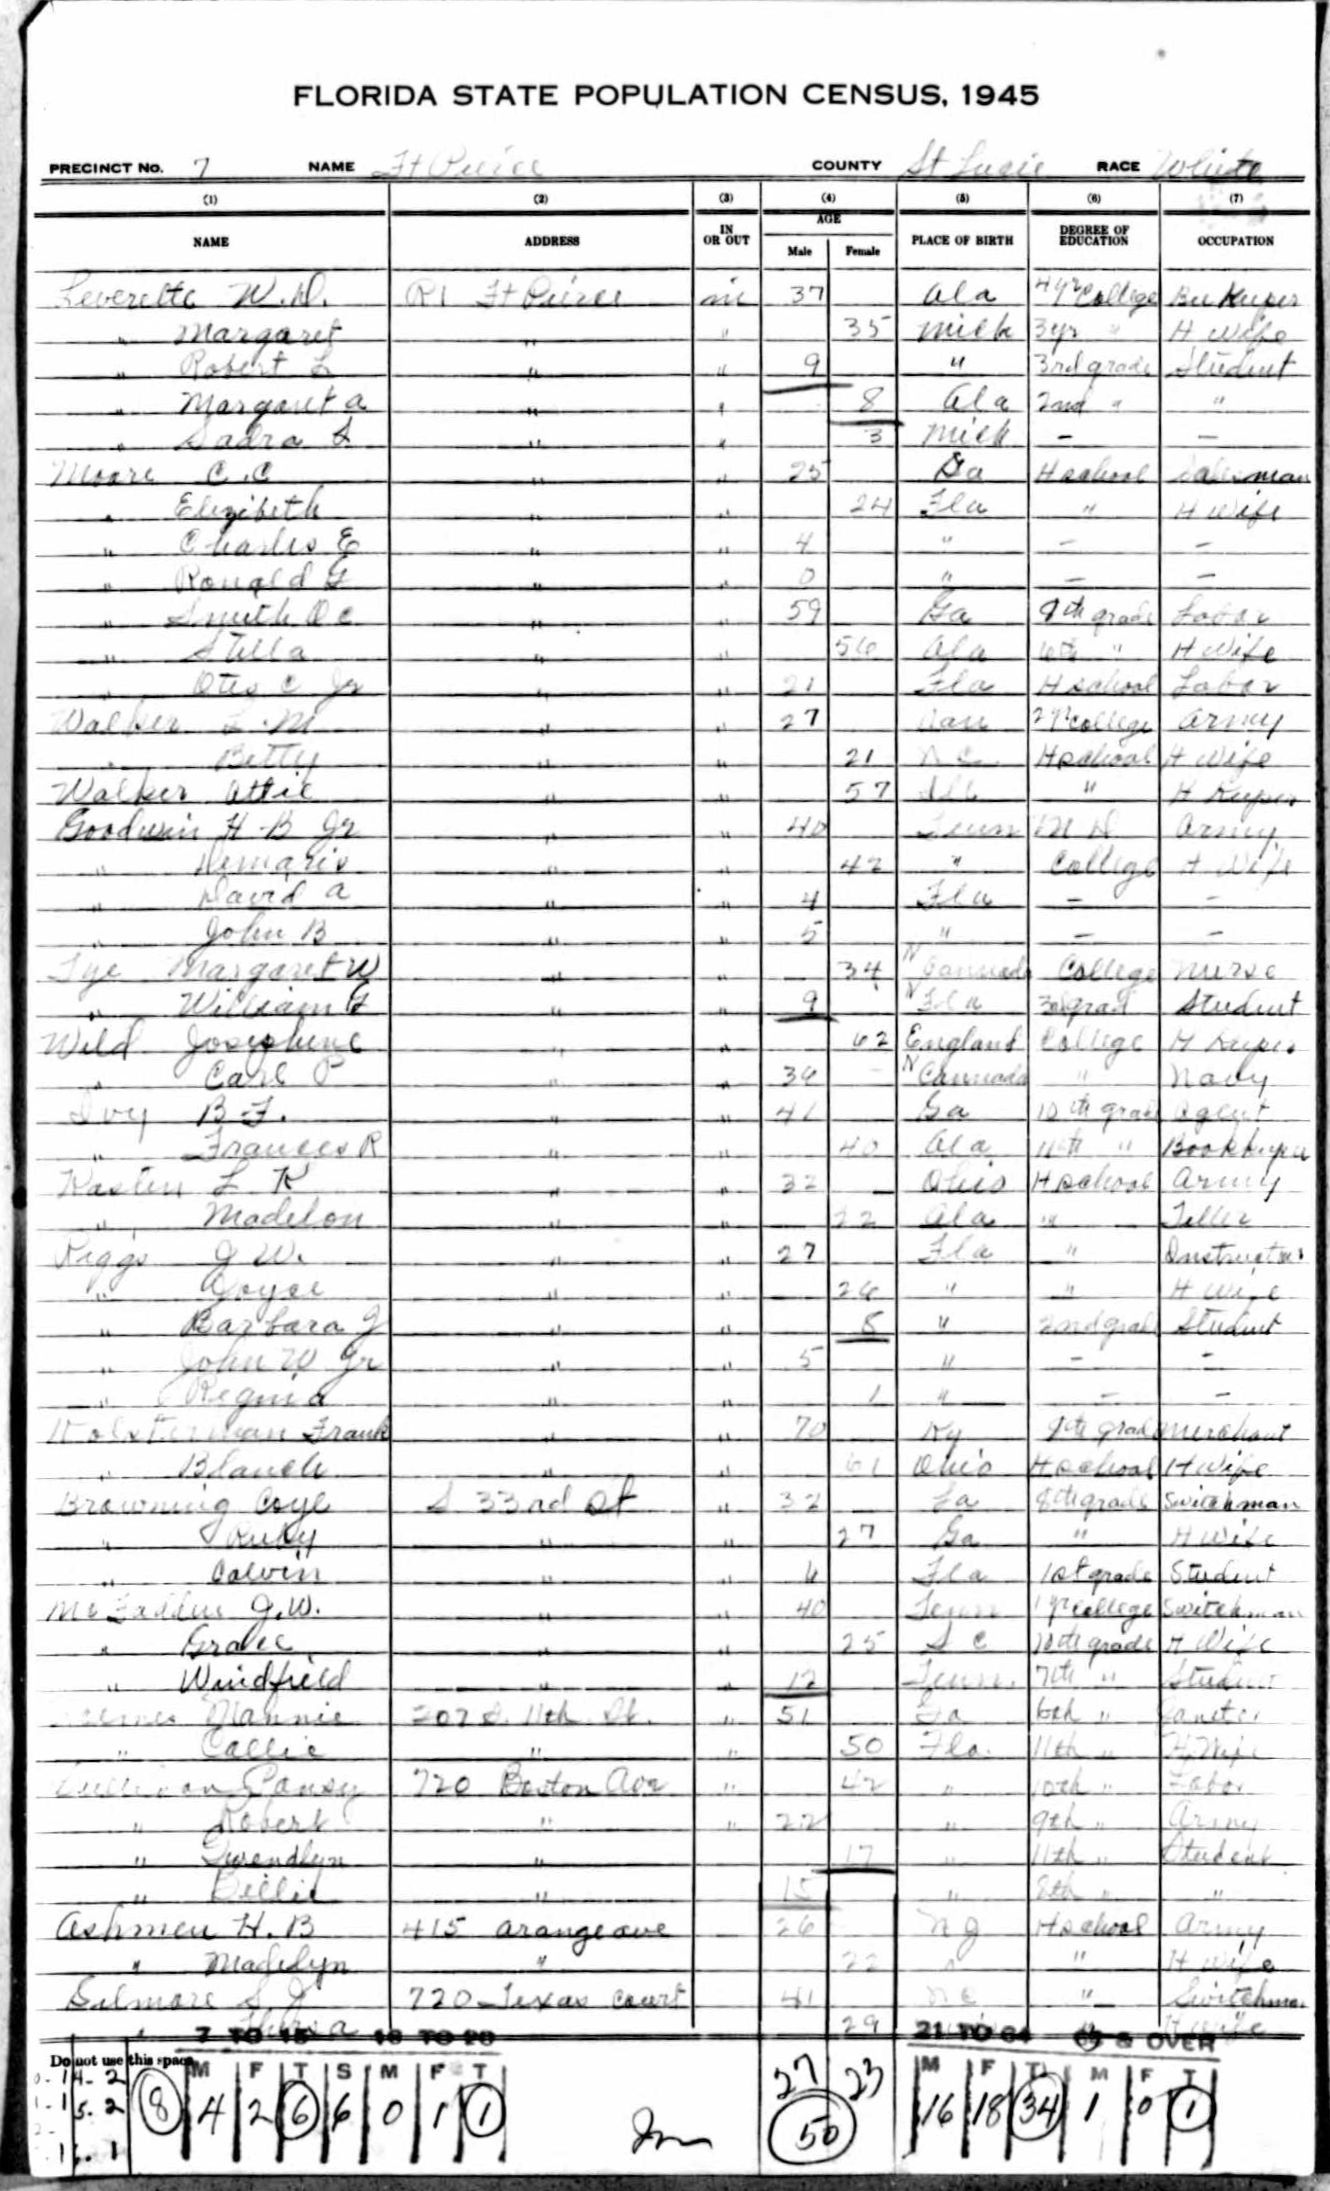 FLORIDA STATE POPULATION CENSUS, 1945
PRECINCT No. 7 NAME Ft Pierce COUNTY St Lucie RACE White
(1) (2) (3) (4) (5) (6) (7)
NAME ADDRESS IN OR OUT AGE Male Female PLACE OF BIRTH DEGREE OF EDUCATION OCCUPATION
Leverette W.D. R1 Ft Peirce in 37 Ala 4 yr College Bee Keeper
" Margaret " " 35 Mich 3 yr " H Wife
" Robert L " " 9 " 3rd grade Student
" Margaret a " " 8 Ala 2nd " "
" Sadra S " " 3 Mich - -
Moore C.C " " 25 Ga H school Salesman
" Elizibeth " " 24 Fla " H Wife
" Charles E " " 4 " - -
" Ronald G " " 0 " - -
" Smith O C " " 59 Ga 8th grade Labor
" Stella " " 56 Ala 6th " H Wife
" Otis C Jr " " 21 Fla H school Labor
Walker L. M " " 27 2 yr College Army
" Betty " " 21 N C H school H Wife
Walker Attie " " 57 " H Keeper
Goodwin H B Jr " " 40 Tenn M D Army
" Demaris " " 42 " College H Wife
" David a " " 4 Fla - -
" John B " " 5 " - -
Tye Margaret W " " 34 N Cannada College Nurse
" William G " " 9 N Fla 3rd grad Student
Wild Josephine " " 62 England College H Keeper
" Carl P " " 36 N Cannada " Navy
Ivy B F. " " 41 Ga 10th grade Agent
" Frances R " " 40 Ala 11th " Bookkeeper
Kasten L K " " 32 Ohio H school Army
" Madelon " " 22 Ala " Teller
Riggs J W. " " 27 Fla " Instructor
" Joyce " " 26 " " H Wife
" Barbara J " " 8 " 2nd grade Student
" John W Jr " " 5 " - -
" Regina " " 1 " - -
Frank " " 70 Ky 8th grade Merchant
" Blanch " " 61 Ohio H school H Wife
Browning Coye S 33rd St " 32 La 8th grade Switchman
" Ruby " " 27 Ga " H Wife
" Calvin " " 6 Fla 1st grade Student
McFadden J.W. " " 40 Tenn 1 yr College Switchman
" Grace " " 25 S C 10th grade H Wife
" Windfield " " 12 Tenn. 7th " Student
Nannie 207 S. 11th St. " 51 Ga 6th " Janitor
" Callie " " 50 Fla. 11th " H. Wife
Sullivan Pansy 720 Boston Ave " 42 " 10th " Labor
" Robert " " 22 " 9th " Army
" Gwendlyn " 17 " 11th " Student
" Billie " 15 " 8th " "
Ashmen H. B 415 Orange ave 26 N J H school Army
" Madelyn " 22 " " H Wife
Gilmore S J 720 Texas Court 41 N C " Switchman
" 29 " H Wife
7 TO 15 16 TO 20 21 TO 64 65 & OVER
Do not use this space
M F T S M F T 27 23 M F T M F T
8 4 2 6 6 0 1 1 50 16 18 34 1 0 1